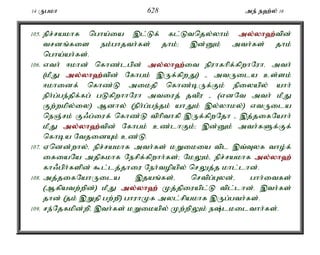 14 ருபமா 628 அந் நஹ்ல் 16
105. நிச்சயமாக பொய்யை இட்டுக் கட்டுவதெல்லாம் அல்லாஹ்வின்
வசனங்களை நம்பாதவர்கள் தாம்; இன்னும் அவர்கள் தாம்
பொய்யர்கள்.
106. எவர் ஈமான் கொண்டபின் அல்லாஹ்வை நிராகரிக்கிறாரோ, அவர்
(மீது அல்லாஹ்வின் கோபம் இருக்கிறது) - அவருடைய உள்ளம்
ஈமானைக் கொண்டு அமைதி கொண்டிருக்கும் நிலையில் யார்
நிர்ப்பந்திக்கப் படுகிறாரோ அவரைத் தவிர - (எனவே அவர் மீது
குற்றமில்லை) ஆனால் (நிர்ப்பந்தம் யாதும் இல்லாமல்) எவருடைய
நெஞ்சம் குஃப்ரைக் கொண்டு விரிவாகி இருக்கிறதோ - இத்தகையோர்
மீது அல்லாஹ்வின் கோபம் உண்டாகும்; இன்னும் அவர்களுக்குக்
கொடிய வேதனையும் உண்டு.
107. ஏனென்றால், நிச்சயமாக அவர்கள் மறுமையை விட இவ்வுலக வாழ்க்
கையையே அதிகமாக நேசிக்கிறார்கள்; மேலும், நிச்சயமாக அல்லாஹ்
காஃபிர்களின் கூட்டத்தாரை நேர்வழியில் செலுத்த மாட்டான்.
108. அத்தகையோருடைய இதயங்கள், செவிப்புலன், பார்வைகள்
(ஆகியவற்றின்) மீது அல்லாஹ் முத்திரையிட்டு விட்டான், இவர்கள்
தான் (தம் இறுதி பற்றி) பாராமுக அலட்சியமாக இருப்பவர்கள்.
109. சந்தேகமின்றி, இவர்கள் மறுமையில் முற்றிலும் நஷ்டமடைவார்கள்.